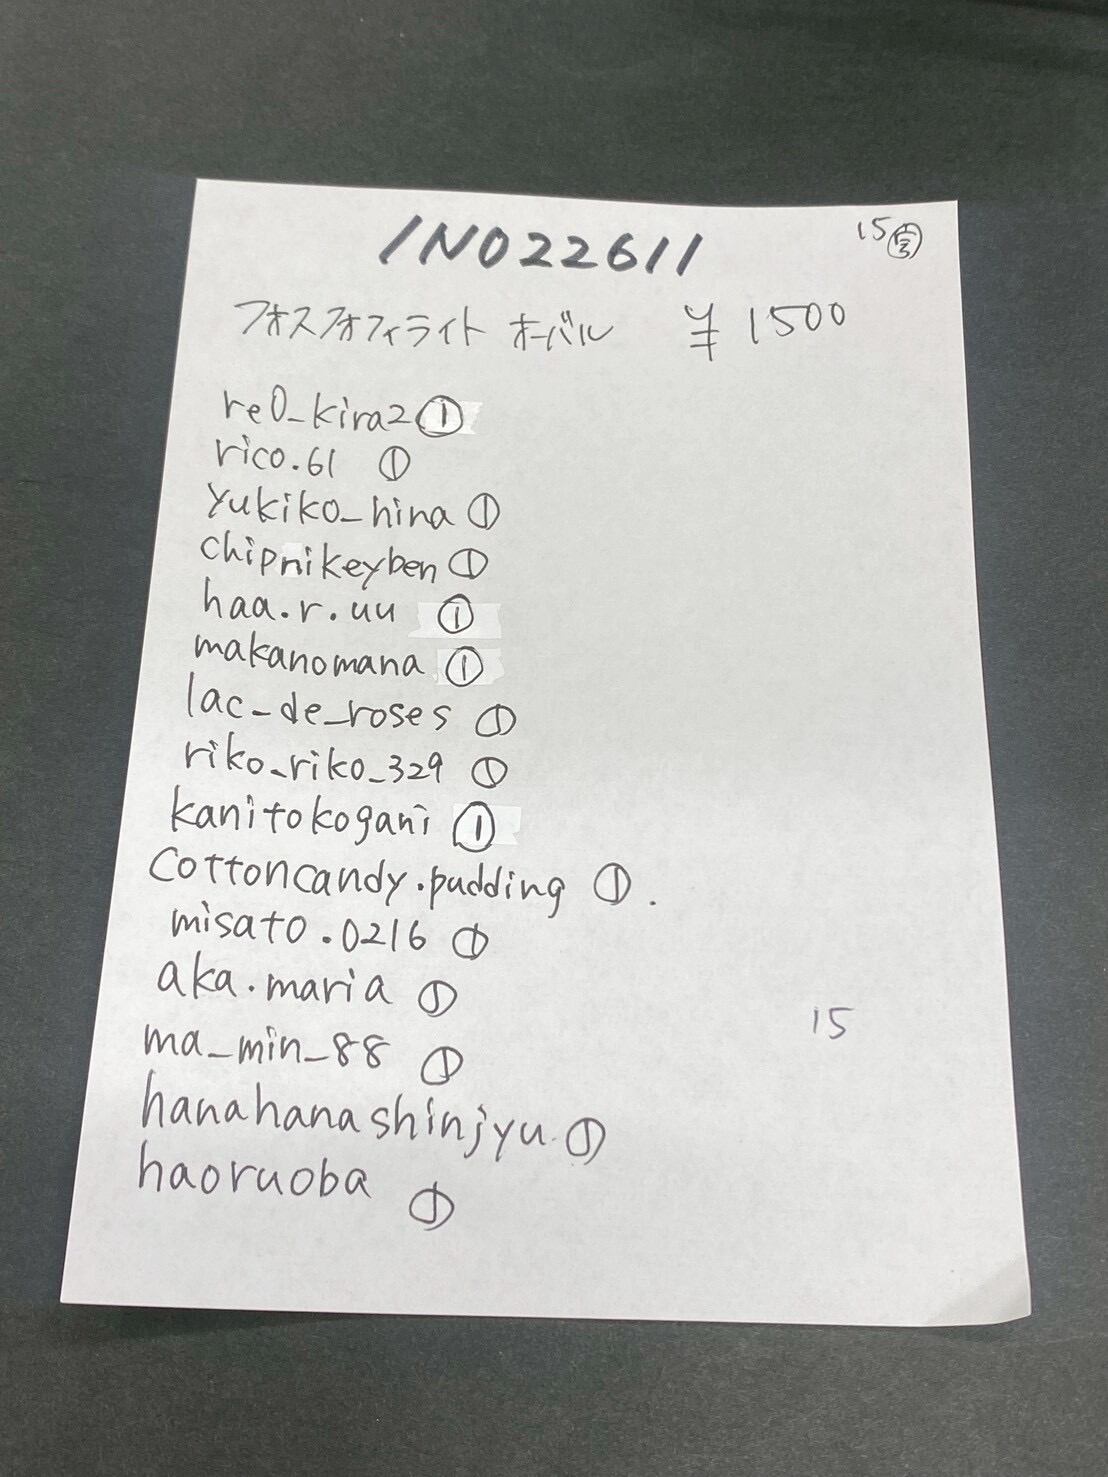 INO22611
15
フォスフォフィライト オーバル ¥1500
re0_kira2 ①
rico.61 ①
yukiko_hina ①
chipnikeyben ①
haa.r.uu ①
makanomana ①
lac_de_roses ①
riko_riko_329 ①
kanitokogani ①
cottoncandy.pudding ①.
misato.0216 ①
aka.maria ①
15
ma_min_88 ①
hanahanashinjyu. ①
haoruoba ①